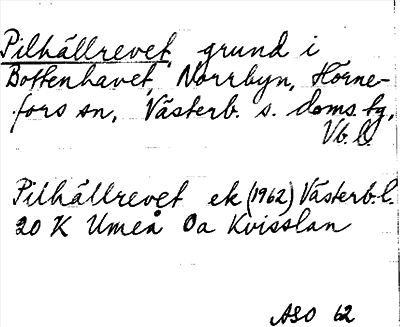 Pilhällrevet, grund i
Bottenhavet, Norrbyn, Hörne-
fors sn, Västerb. s. doms.tg,
Vb.l.
Pilhällrevet ek (1962) Västerb.l.
20 K Umeå 0a Kvisslan
ASO 62